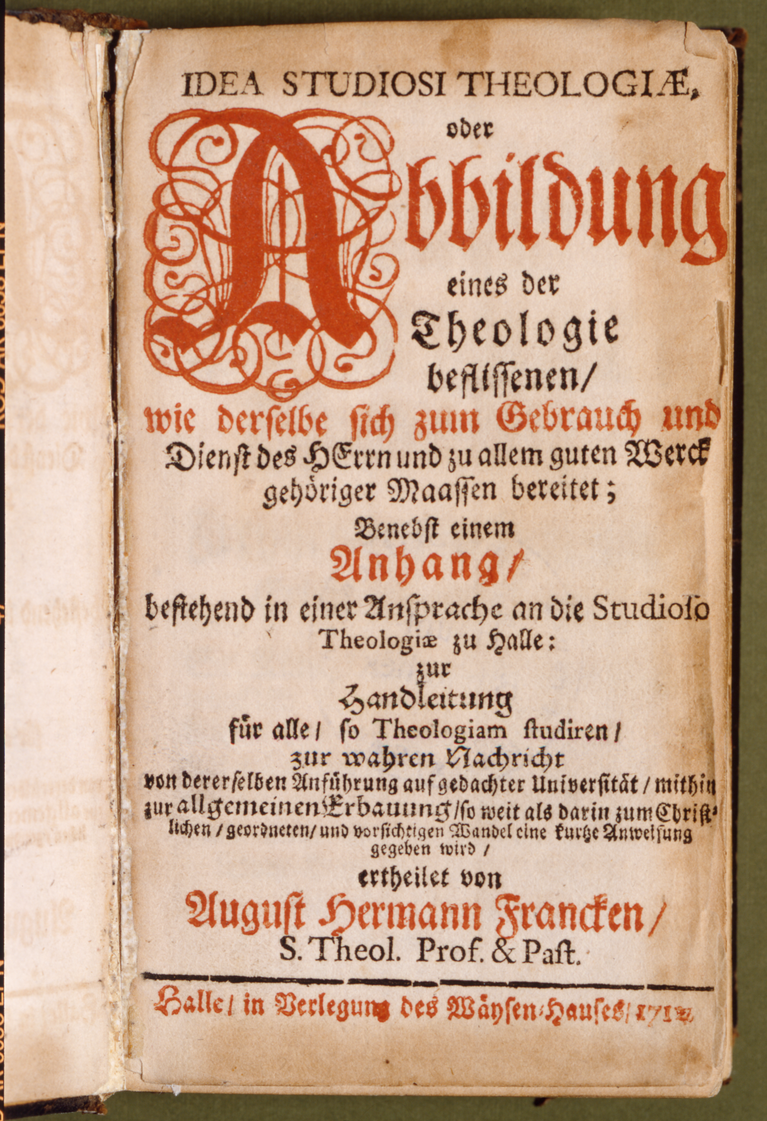 IDEA STUDIOSI THEOLOGIÆ,
oder
Abbildung
eines der
Theologie
beflissenen/
wie derselbe sich zum Gebrauch und
Dienst des HErrn und zu allem guten Werck
gehöriger Maassen bereitet;
Benebst einem
Anhang/
bestehend in einer Ansprache an die Studioso
Theologiæ zu Halle:
zur
Handleitung
für alle/ so Theologiam studiren/
zur wahren Nachricht
von dererselben Anführung auf gedachter Universität/ mithin
zur allgemeinen Erbauung/ so weit als darin zum Christ-
lichen/ geordneten/ und vorsichtigen Wandel eine kurtze Anweisung
gegeben wird/
ertheilet von
August Hermann Francken/
S. Theol. Prof. & Past.
Halle/ in Verlegung des Wäysen-Hauses/